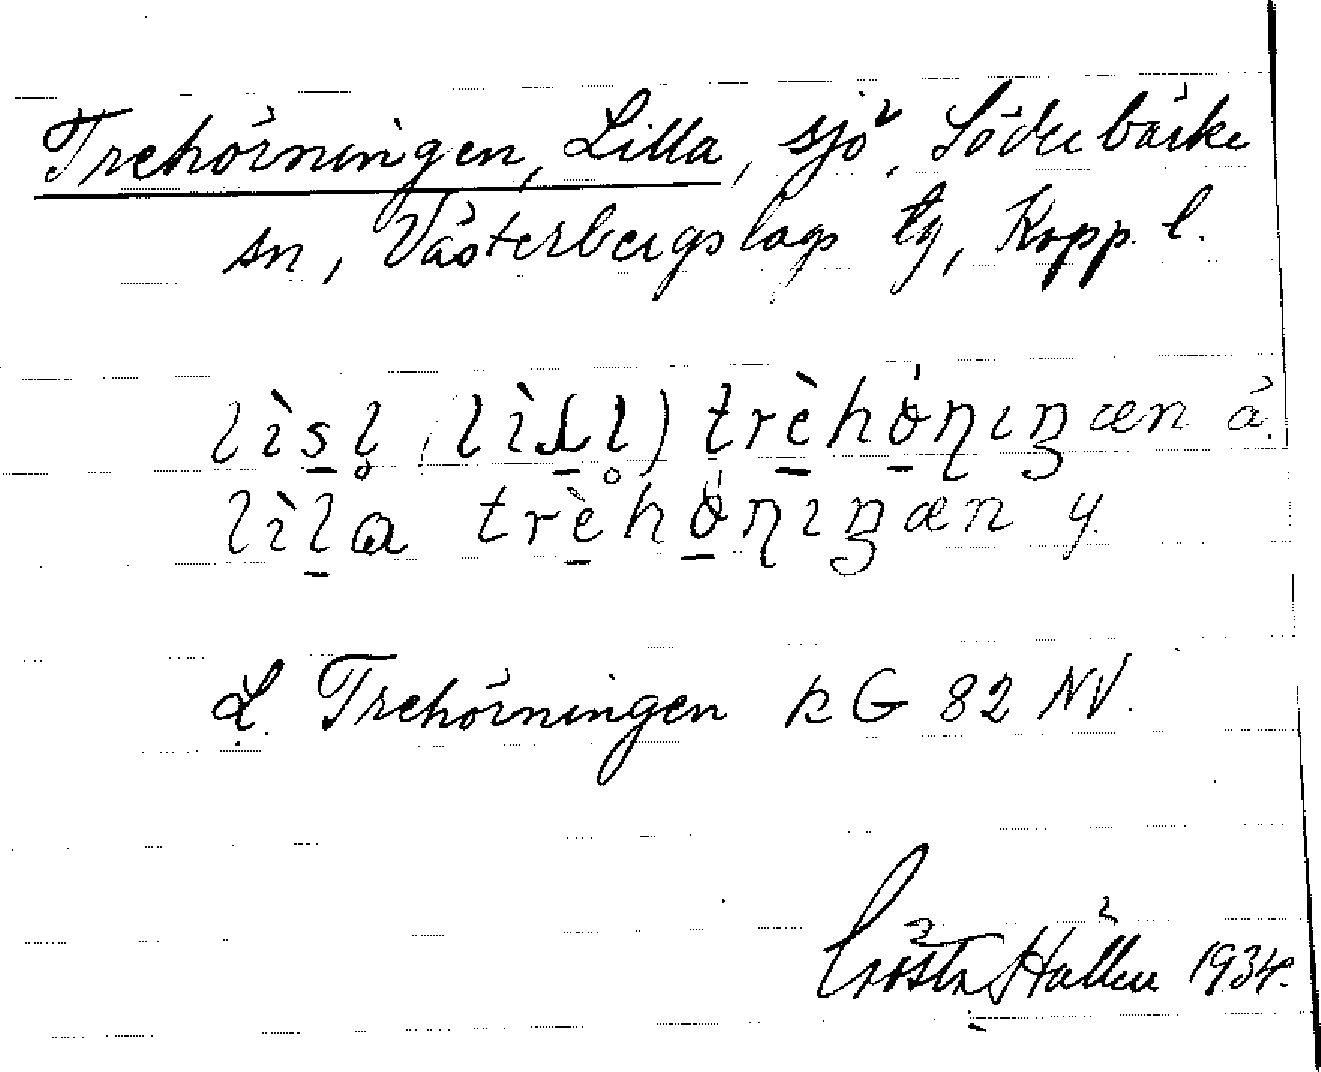 Trehörningen, Lilla, sjö, Söderbärke
sn, Västerbergslags tg, Kopp. l.
lìsl̥ (lìʟl̥) trèhó̤ɳıŋæn ä.
lìla trèhó̤ɳıŋæn y.
L. Trehörningen kG 82 NV.
Gösta Hallén 1934.